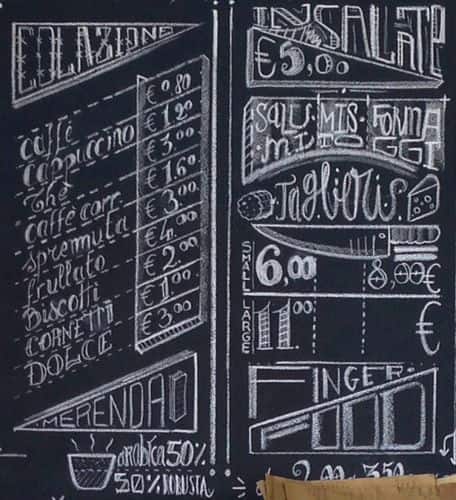 COLAZIONE
caffè € 0.80
cappuccino € 1.20
Thè € 3.00
caffè corr. € 1.60
spremuta € 3.00
frullato € 4.00
BISCOTTI € 2.00
CORNETTI € 1.00
DOLCE € 3.00
MERENDA
arabica 50%
50% ROBUSTA
INSALATE
€ 5,00
SALU MIS FORMA
MI TO GGI
Taglieris
SMALL 6,00 8,00€
LARGE 11.00 €
FINGER
FOOD
2,00 3,50